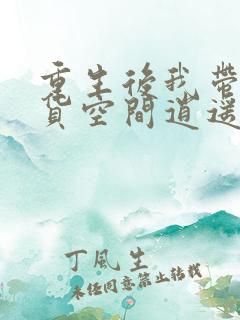 重生後我帶
貨空間逍遥
丁風生
未经同意禁止转载